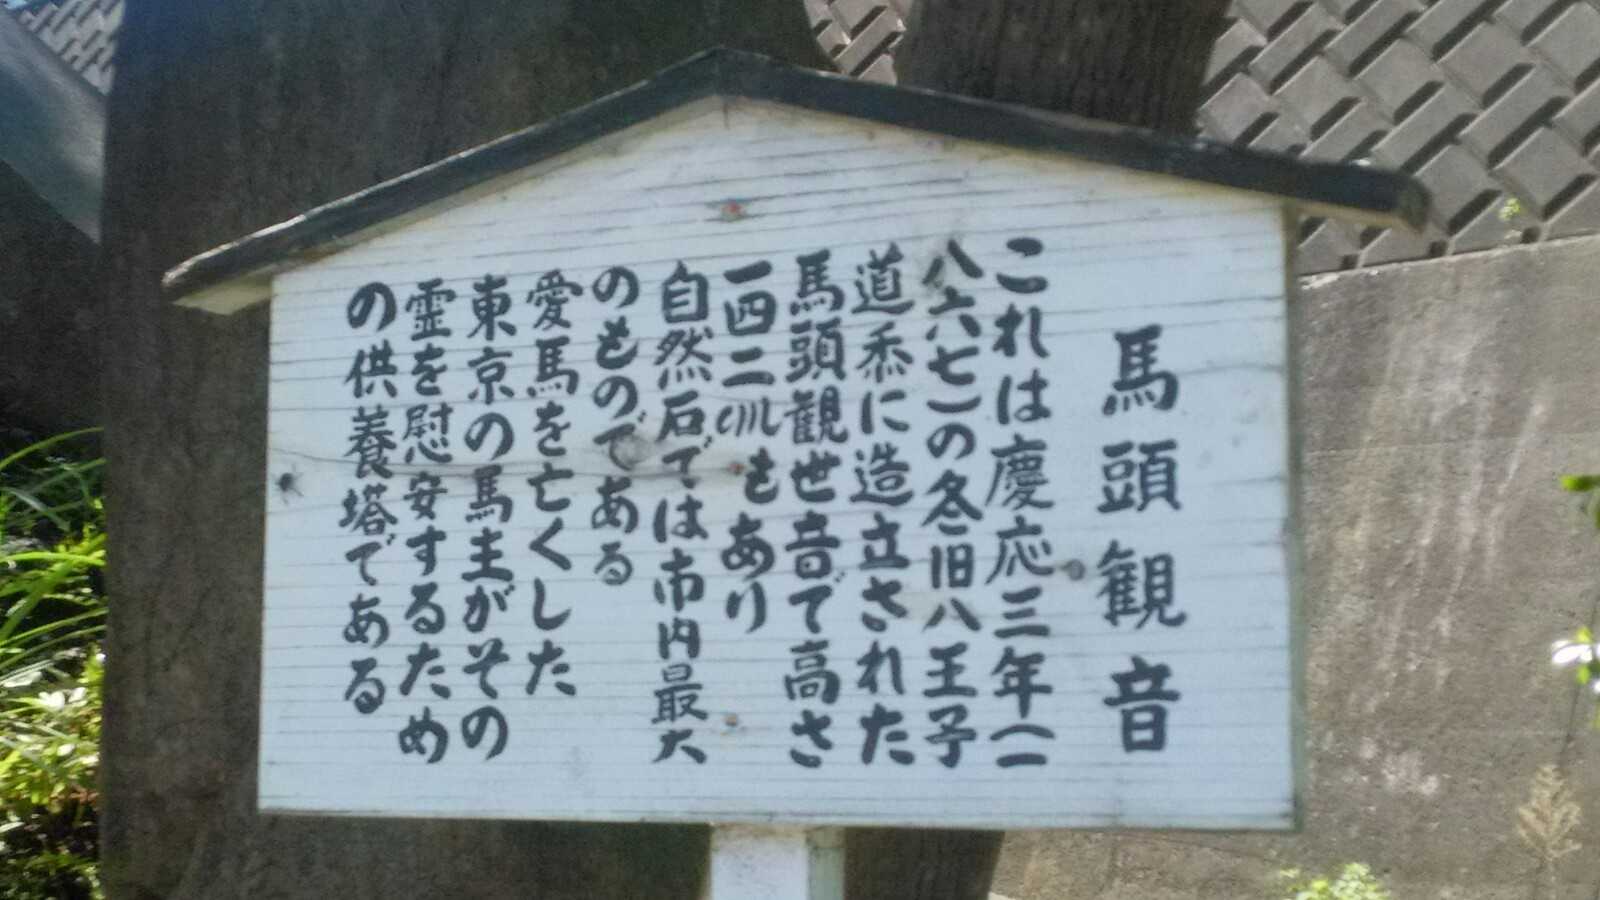 馬頭観音
これは慶応三年(一
八六七)の冬旧八王子
道添に造立された
馬頭観世音で高さ
一四二㎝もあり
自然石では市内最大
のものである
愛馬を亡くした
東京の馬主がその
霊を慰安するため
の供養塔である